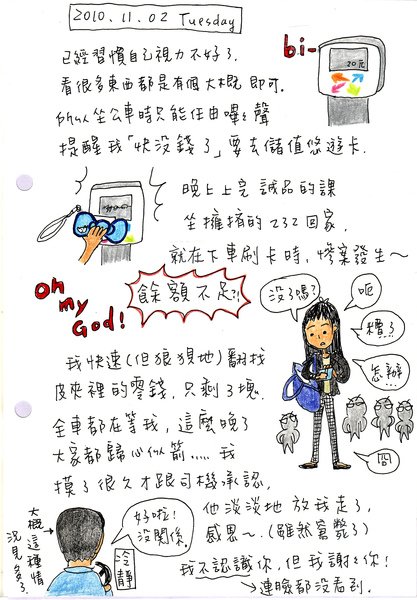 2010.11.02 Tuesday
已經習慣自己視力不好了.
看很多東西都是有個大概即可.
所以坐公車時只能任由嗶嗶聲
提醒我「快沒錢了」要去儲值悠遊卡.
bi-
20元
晚上上完誠品的課
坐擁擠的232回家.
就在下車刷卡時, 慘案發生~
oh my God!
餘額不足?!
沒了嗎?
呃
糟了
怎辦
囧
我快速(但狼狽地)翻找
皮夾裡的零錢, 只剩3塊.
全車都在等我, 這麼晚了
大家都歸心似箭..... 我
摸了很久才跟司機承認.
他淡淡地放我走了,
感恩~. (雖然窘斃了)
我不認識你, 但我謝謝你!
→連臉都沒看到.
好啦!
沒關係.
冷靜
大概這種情
況見多了.